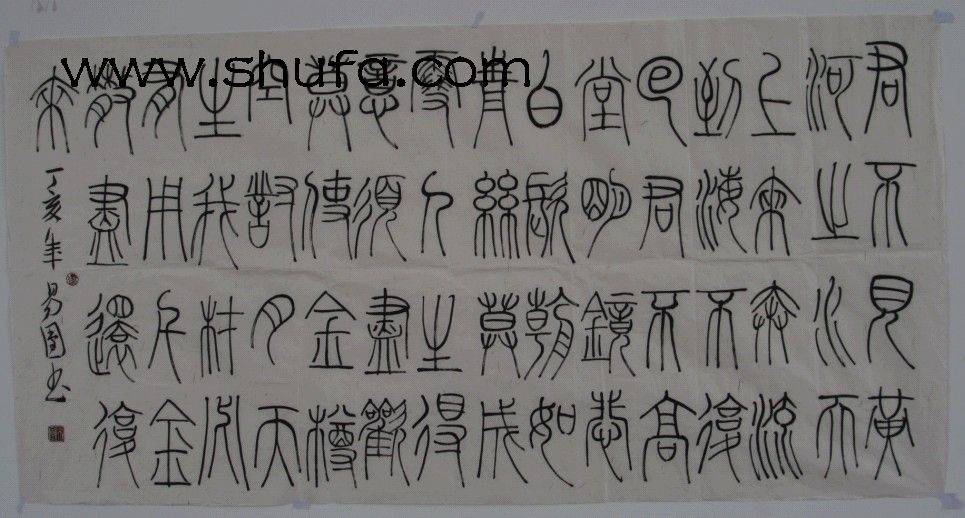 www.shufa.com
君不見黃
河之水天
上來奔流
到海不復
回君不高
堂明鏡悲
白髮朝如
青絲莫成
雪人生得
意須盡歡
莫使金樽
空對月天
生我材必
有用千金
散盡還復
來
丁亥年易书